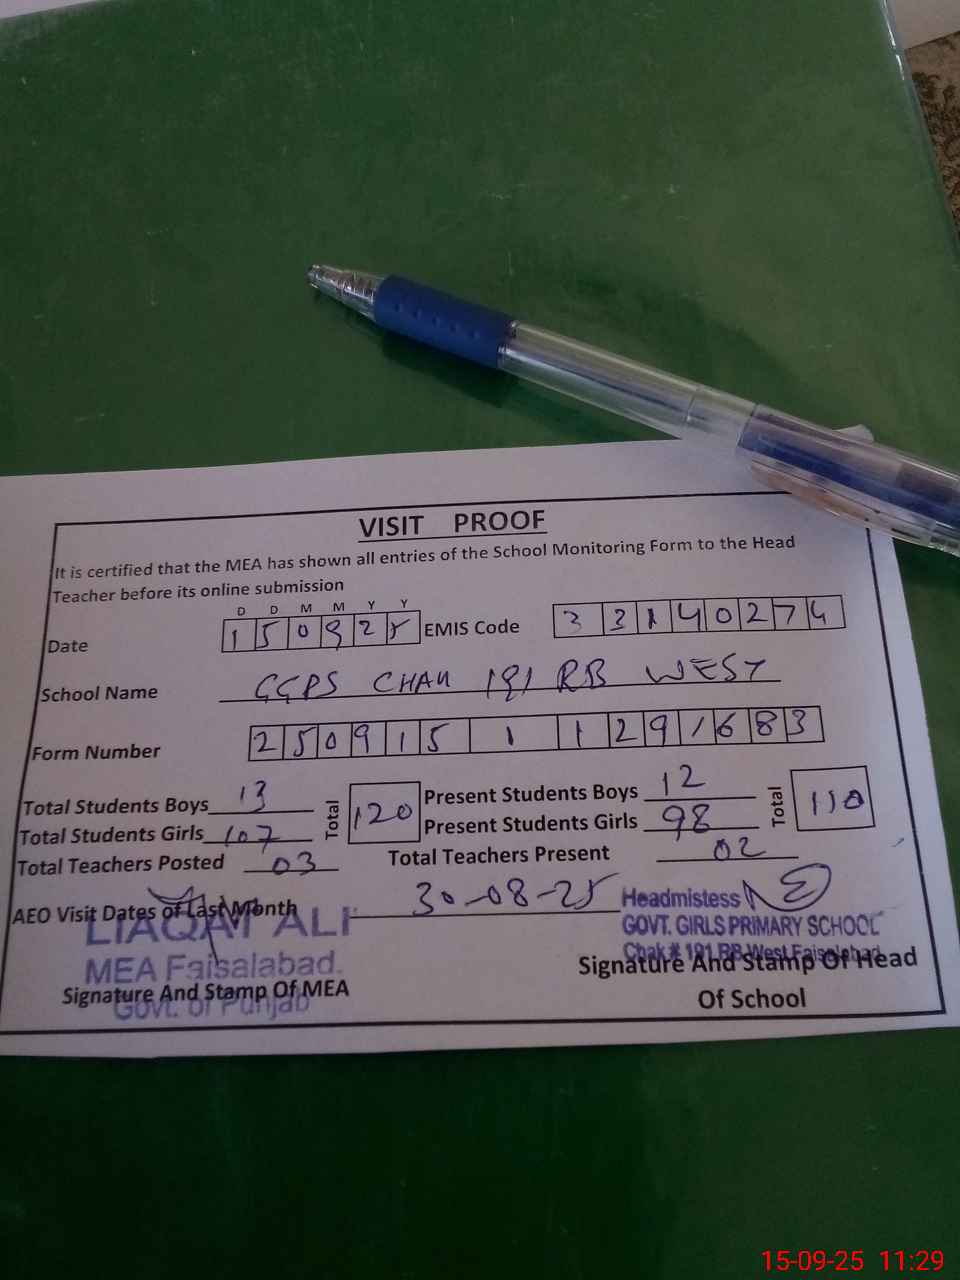 VISIT PROOF
It is certified that the MEA has shown all entries of the School Monitoring Form to the Head
Teacher before its online submission
D D M M Y Y
Date 1 5 0 9 2 5 EMIS Code 3 3 1 4 0 2 7 4
School Name GGPS CHAK 191 RB WEST
Form Number 2 5 0 9 1 5 1 1 2 9 1 6 8 3
Total Students Boys 13 Total 120 Present Students Boys 12 Total 110
Total Students Girls 107 Present Students Girls 98
Total Teachers Posted 03 Total Teachers Present 02
AEO Visit Dates of Last Month 30-08-25
LIAQAT ALI
MEA Faisalabad.
Govt. of Punjab
Signature And Stamp Of MEA
Headmistess
GOVT. GIRLS PRIMARY SCHOOL
Chak # 191 RB West Faisalabad
Signature And Stamp Of Head
Of School
15-09-25 11:29